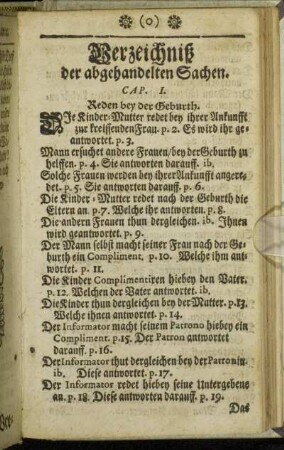 (o)
Verzeichniß
der abgehandelten Sachen.
CAP. I.
Reden bey der Geburth.
DJe Kinder-Mutter redet bey ihrer Ankunfft
zur kreissenden Frau. p. 2. Es wird ihr ge-
antwortet. p. 3.
Mann ersuchet andere Frauen/bey der Geburth zu
helffen. p. 4. Sie antworten darauff. ib.
Solche Frauen werden bey ihrer Ankunfft angere-
det. p. 5. Sie antworten darauff. p. 6.
Die Kinder-Mutter redet nach der Geburth die
Eltern an. p. 7. Welche ihr antworten. p. 8.
Die andern Frauen thun dergleichen. ib. Jhnen
wird geantwortet. p. 9.
Der Mann selbst macht seiner Frau nach der Ge-
burth ein Compliment, p. 10. Welche ihm ant-
wortet. p. 11.
Die Kinder Complimentiren hiebey den Vater.
p. 12. Welchen der Vater antwortet. ib.
Die Kinder thun dergleichen bey der Mutter. p. 13.
Welche ihnen antwortet. p. 14.
Der Informator macht seinem Patrono hiebey ein
Compliment. p. 15. Der Patron antwortet
darauff. p. 16.
Der Informator thut dergleichen bey der Patronin.
ib. Diese antwortet. p. 17.
Der Informator redet hiebey seine Untergebene
an. p. 18. Diese antworten darauff. p. 19.
Das